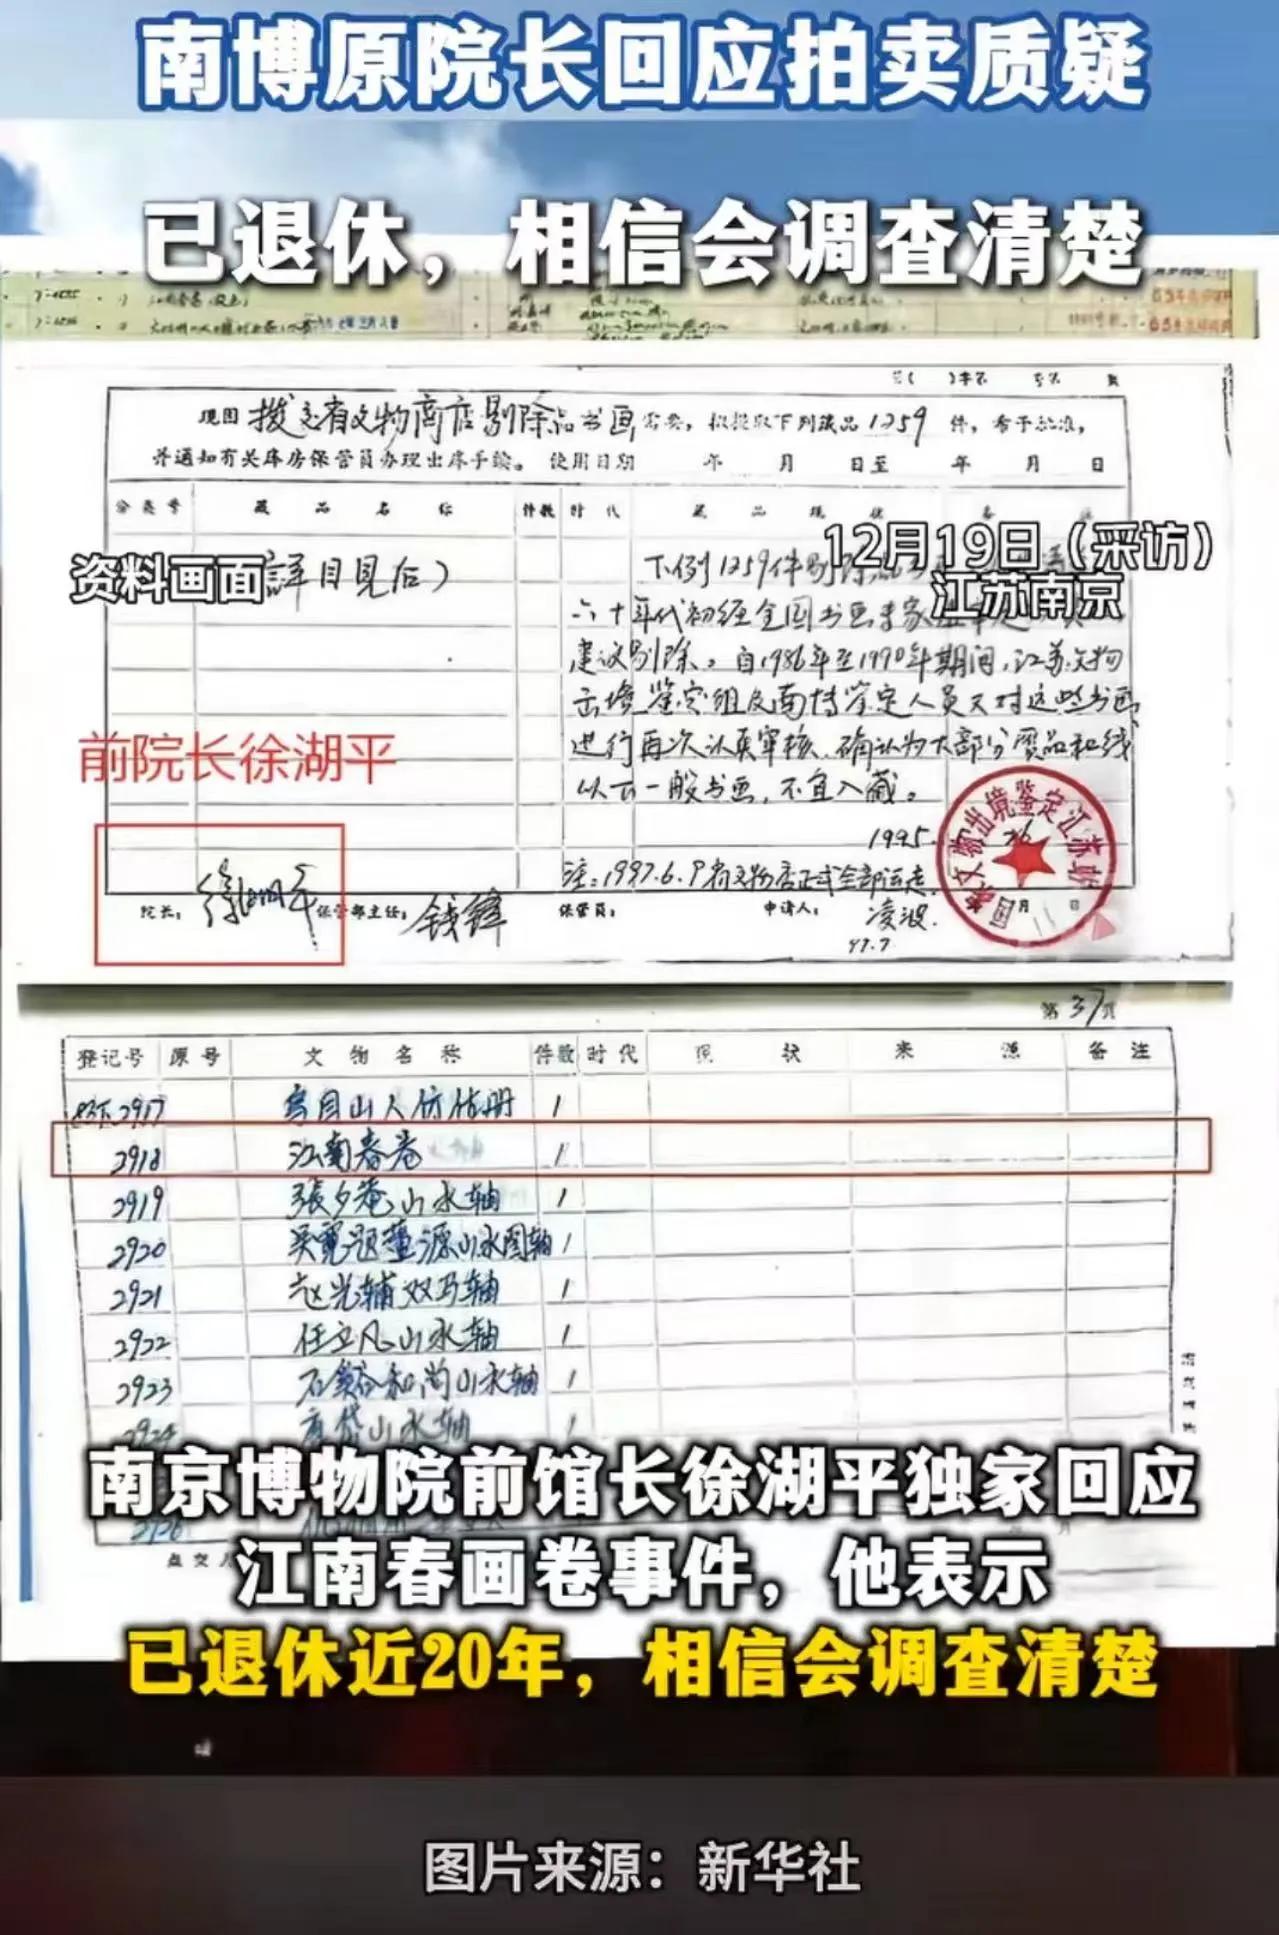 南博原院长回应拍卖质疑
已退休，相信会调查清楚
现因 拨交省文物商店剔除品书画 需要，拟提取下列藏品 1259 件，希予批准，
并通知有关库房保管员办理出库手续。 使用日期 年 月 日至 年 月 日
分类号 藏品名称 件数 时代 藏品现状 备
12月19日（采访）
江苏南京
资料画面
详目见后）
下例1259件剔除
六十年代初经全国书画专家
建议剔除。自1986年至1990年期间，江苏文物
出境鉴定组及南博鉴定人员又对这些书画
进行再次认真审核，确认为大部分赝品和线
以下一般书画，不宜入藏。
前院长徐湖平
1995.
注：1997.6.9省文物店正式全部运走
院长： 徐湖平 保管部主任： 钱锋 保管员： 申请人： 凌波
97.7
文物出境鉴定江苏站
第37页
登记号 原号 文物名称 件数 时代 现状 来源 备注
2917 1
2918 江南春卷 1
2919 张夕庵山水轴 1
2920 吴宽题董源山水图轴 1
2921 赵光辅双马轴 1
2922 任立凡山水轴 1
2923 石谿和尚山水轴 1
山水轴
南京博物院前馆长徐湖平独家回应
江南春画卷事件，他表示
已退休近20年，相信会调查清楚
图片来源：新华社